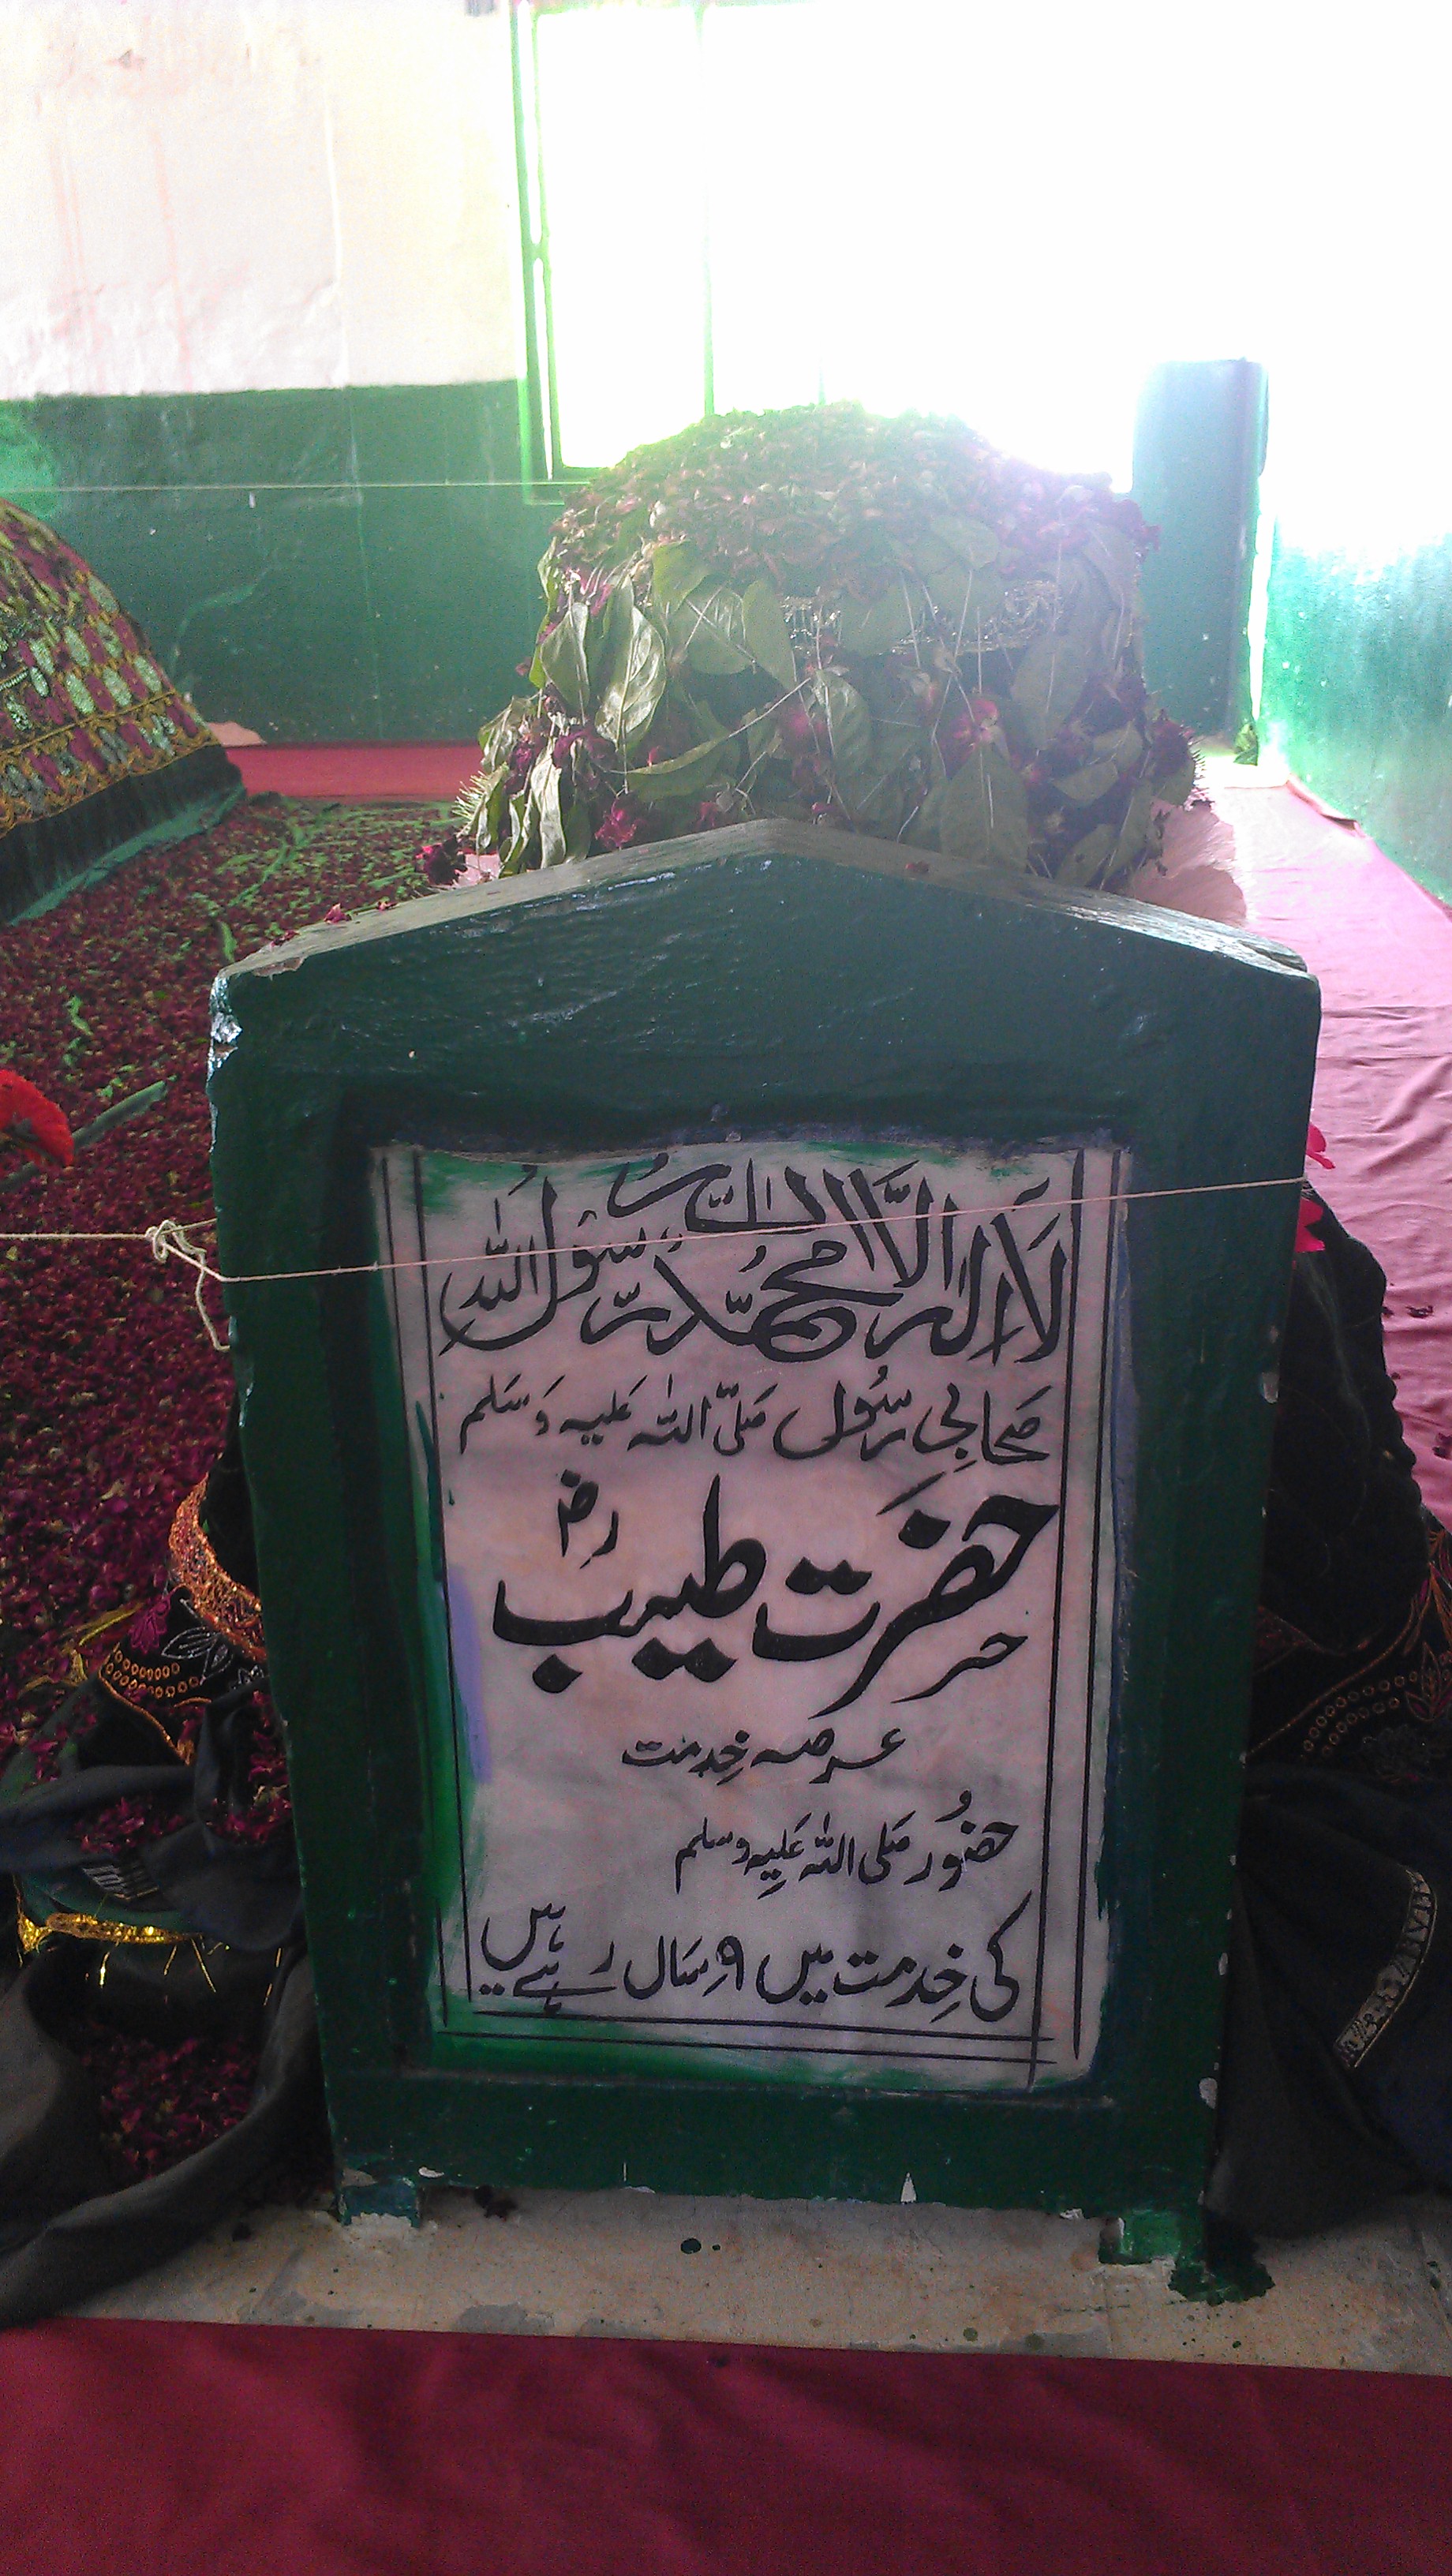 لَا اِلٰہَ اِلَّا اللہ مُحَمَّدٌ رَّسُوْلُ اللہ
صَحابیِ رسُول صَلّی اللہ عَلیہ وَسَلم
حضَرت طیب رض
عرصہ خِدمت
حضُور صَلی اللہ عَلیہِ وسلم
کی خِدمت میں ۹ سَال رہے ہیں